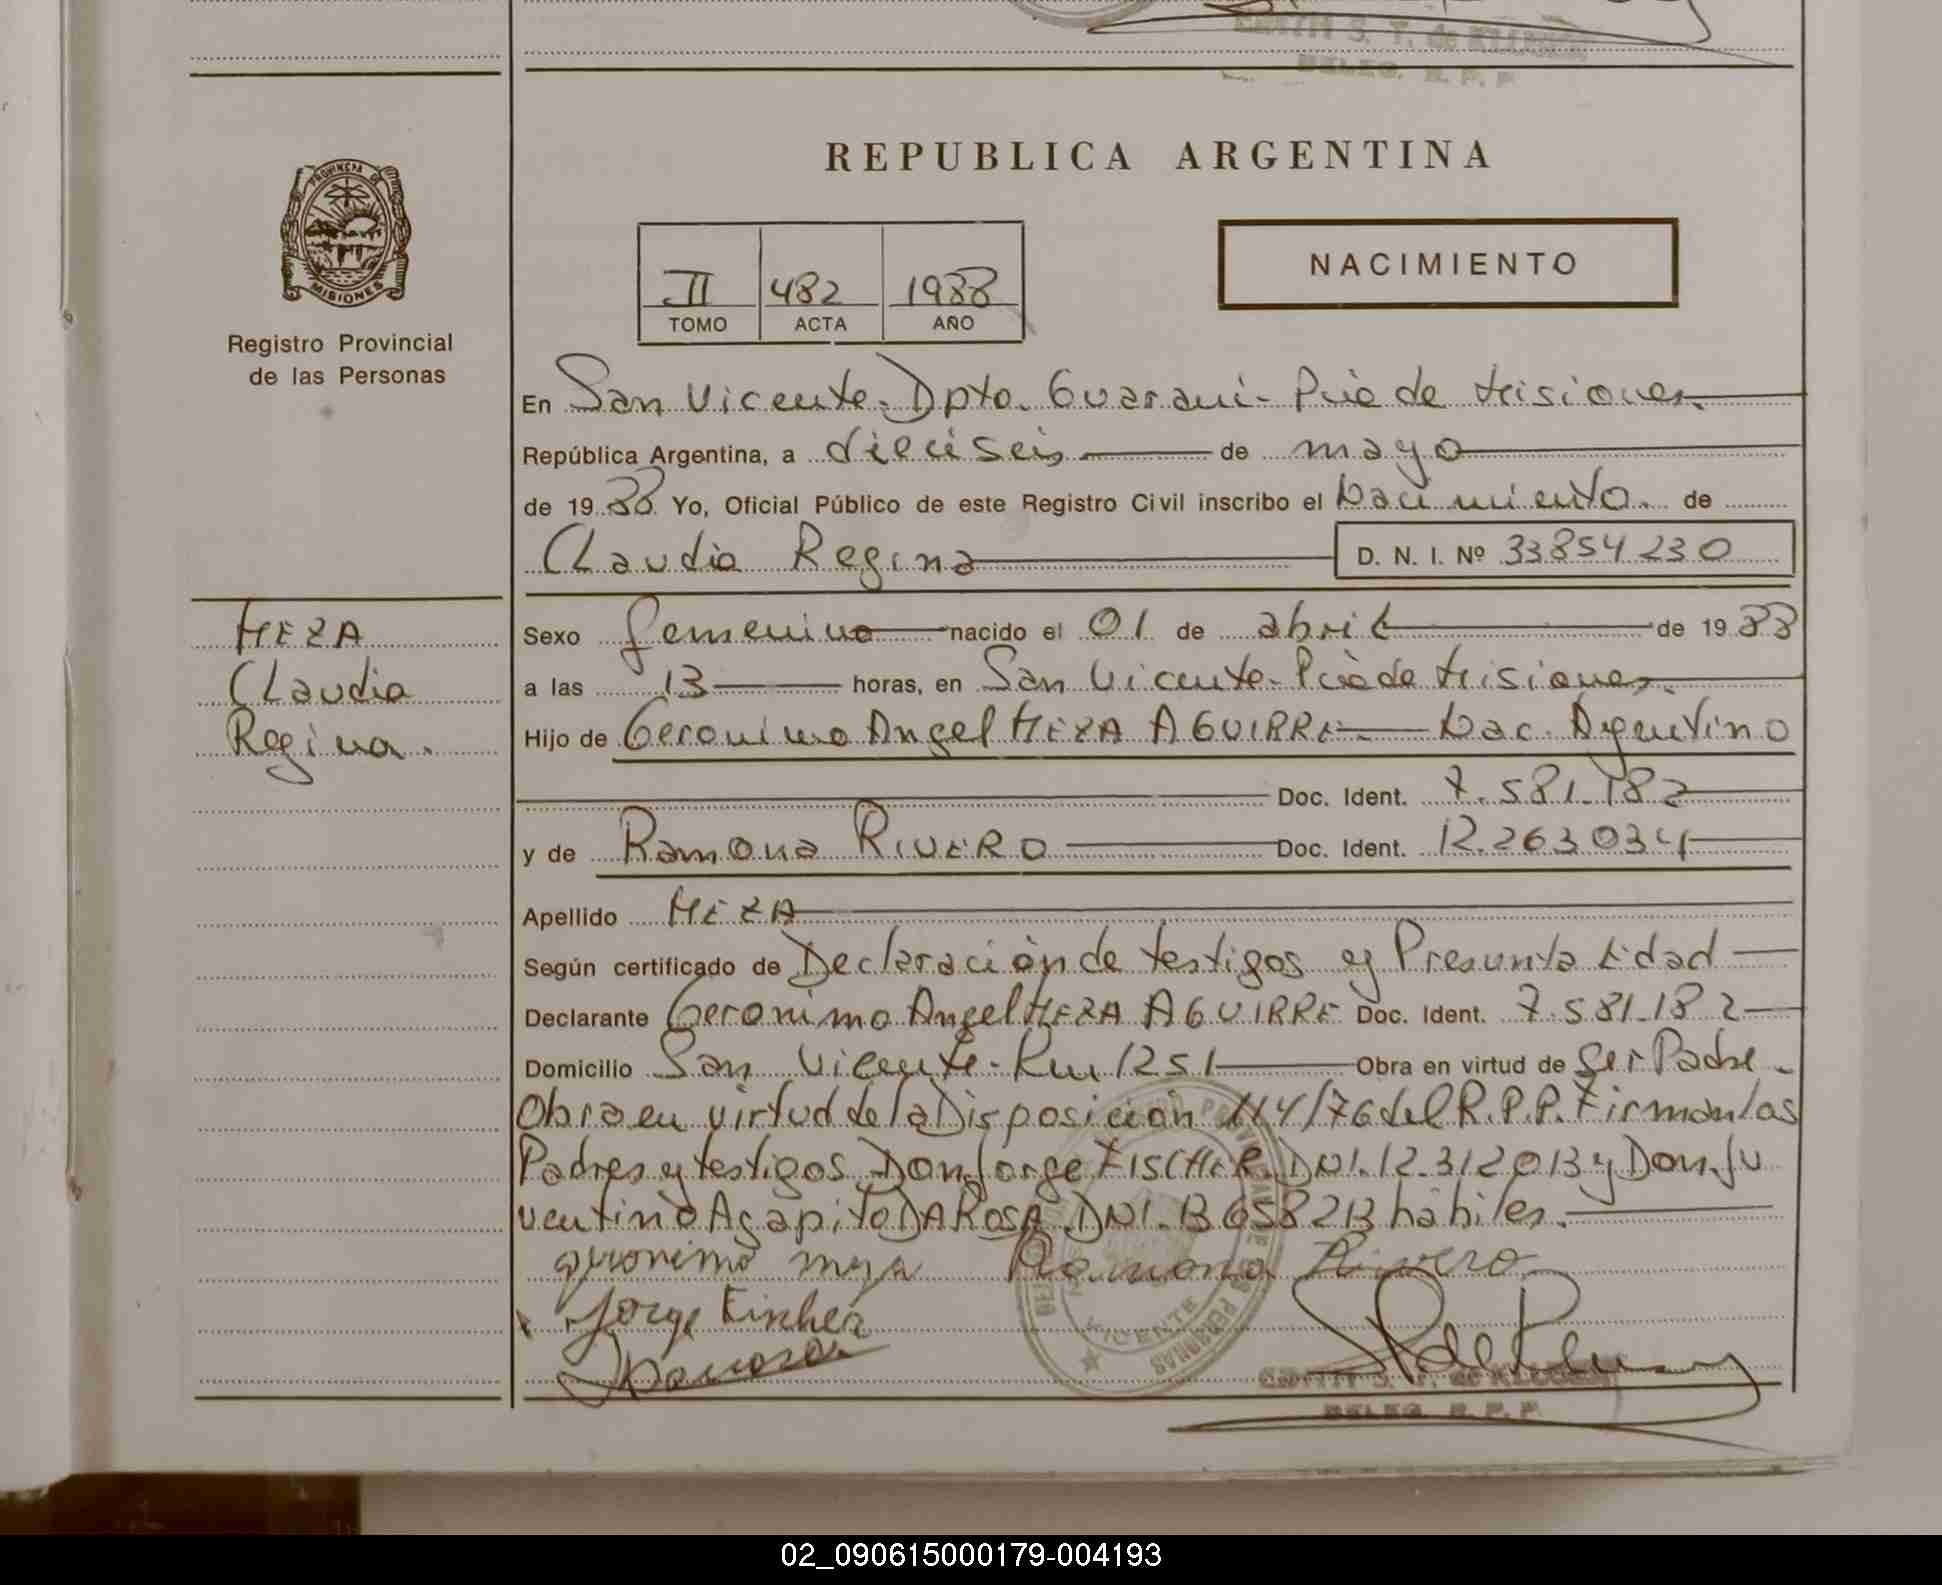 REPUBLICA ARGENTINA
PROVINCIA DE
MISIONES
Registro Provincial
de las Personas
II 482 1988
TOMO ACTA AÑO
NACIMIENTO
En San Vicente. Dpto. Guaraní - Pcia de Misiones.
República Argentina, a dieciseis de mayo
de 1988 Yo, Oficial Público de este Registro Civil inscribo el Nacimiento. de
Claudia Regina D. N. I. Nº 33854230
MEZA
Claudia
Regina.
Sexo femenino nacido el 01 de abril de 1988
a las 13 horas, en San Vicente - Pcia de Misiones.
Hijo de Geronimo Angel MEZA AGUIRRE Nac. Argentino
Doc. Ident. 7.581.182
y de Ramona RIVERO Doc. Ident. 12.263034
Apellido MEZA
Según certificado de Declaración de testigos y Presunta Edad
Declarante Geronimo Angel MEZA AGUIRRE Doc. Ident. 7.581.182
Domicilio San Vicente - Km 1251 Obra en virtud de Ser Padre.
Obra en virtud de la Disposición 114/76 del R.P.P. Firman los
Padres y testigos Don Jorge FISCHER. DNI. 12.312013 y Don Ju
ventino Agapito DA ROSA. DNI. 13658213 hábiles.
geronimo meza Ramona Rivero
Jorge Fischer
DELEG. R. P. P.
02_090615000179-004193